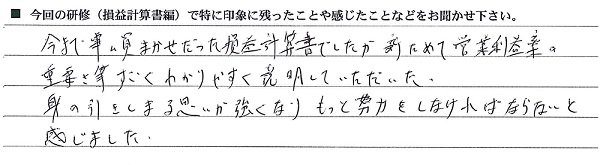 ■ 今回の研修（損益計算書編）で特に印象に残ったことや感じたことなどをお聞かせ下さい。
今まで 任せだった損益計算書でしたが 新ためて営業利益率の
重要さ等すごくわかりやすく説明していただいた.
身の引きしまる思いが強くなり もっと努力をしなければならないと
感じました.